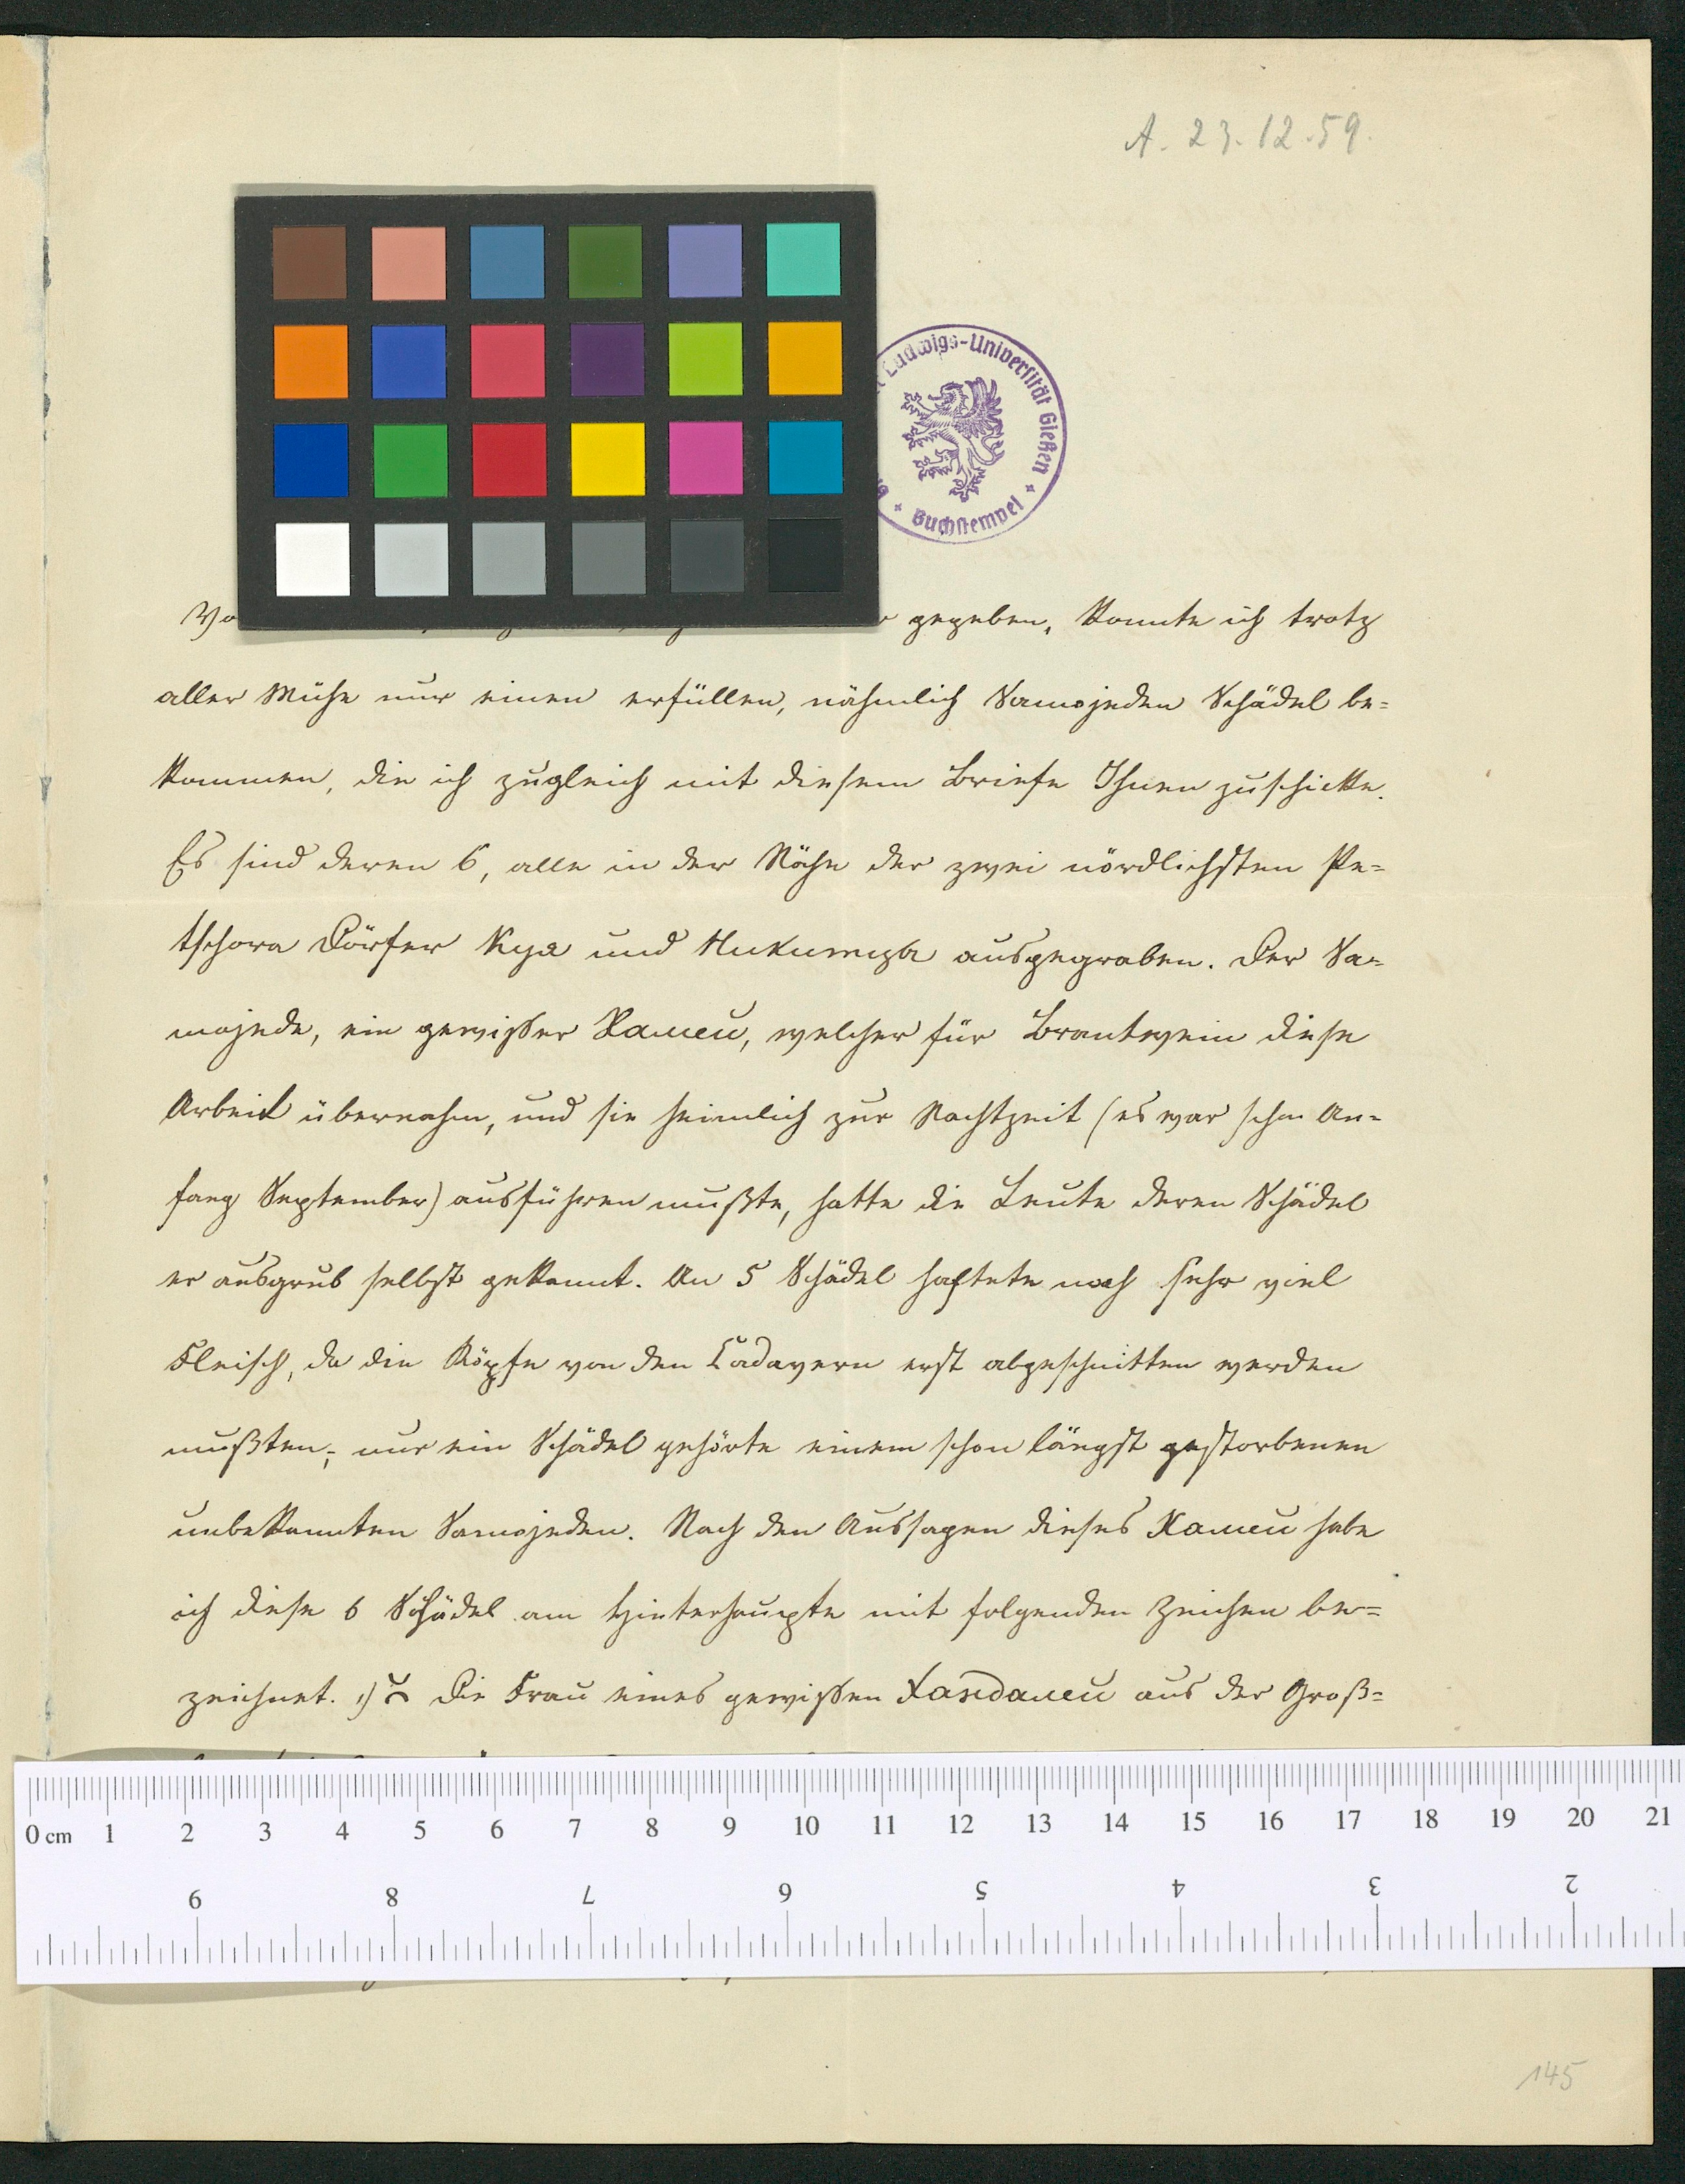 A. 23.12.59.
Ludwigs-Universität Gießen
Buchstempel
gegeben, konnte ich trotz
aller Mühe nur einen erfüllen, nähmlich Samojeden Schädel be=
kommen, die ich zugleich mit diesem Briefe Ihnen zuschikke.
Es sind deren 6, alle in der Nähe der zwei nördlichsten Pe=
tschora Dörfer Куя und Никитцы ausgegraben. Der Sa=
mojede, ein gewißer Хамеи, welcher für Brantwein diese
Arbeit übernahm, und sie heimlich zur Nachtzeit (es war schon An=
fang September) ausführen mußte, hatte die Leute deren Schädel
er ausgrub selbst gekannt. An 5 Schädel haftete noch sehr viel
Fleisch, da die Köpfe von den Cadavern erst abgeschnitten werden
mußten; nur ein Schädel gehörte einem schon längst gestorbenen
unbekannten Samojeden. Nach den Aussagen dieses Хамеи habe
ich diese 6 Schädel am Hinterhaupte mit folgenden Zeichen be=
zeichnet. 1) Die Frau eines gewißen aus der Groß=
0 cm 1 2 3 4 5 6 7 8 9 10 11 12 13 14 15 16 17 18 19 20 21
9 8 7 6 5 4 3 2
145